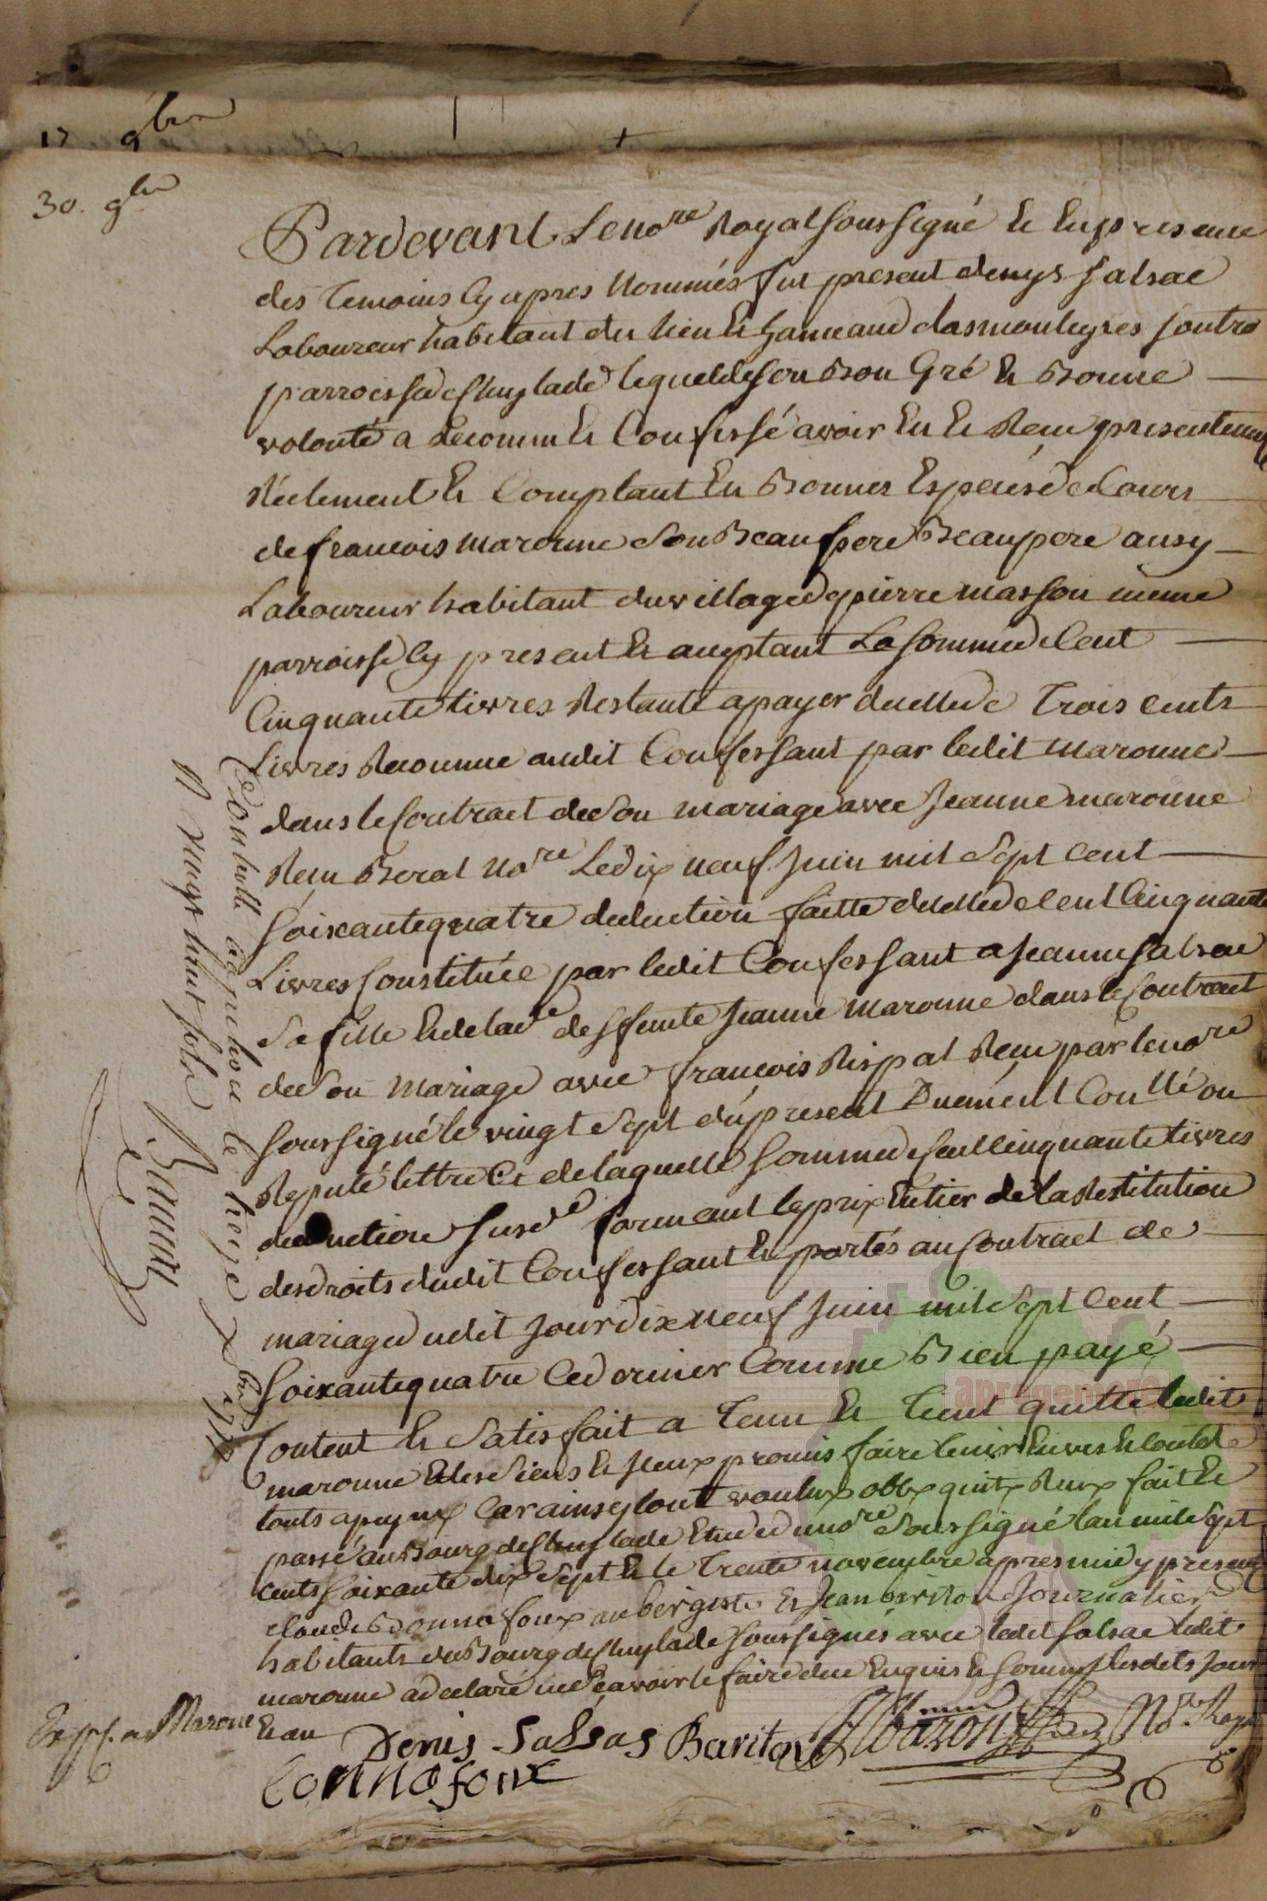 17 9bre
30. 9bre
Pardevant Le nore Royal soussigné Et En presence
des temoins cy apres Nommés fut present denys salsac
Laboureur habitant du lieu & hameau dasmouleyres
parroisse de lequel de son Bon Gré & Bonne
volonté a Reconnu & Confessé avoir Eu & Reçu presentement
Réelement & Comptant En Bonnes Espèces de Cours
de françois maronne son Beau pere Beaupere aussy
Laboureur habitant du village de pierre masson même
parroisse Cy present & aceptant La somme de Cent
Cinquante livres Restante a payer de celle de trois cents
Livres Reconnue audit Confessant par ledit maronne
dans le Contract de son mariage avec Jeanne maronne
Reçu Beral Nore Le dix neuf Juin mil sept cent
soixante quatre deduction faitte de celle de cent Cinquante
Livres Constituée par ledit Confessant a Jeanne salsac
sa fille & de lade deffunte Jeanne maronne dans le Contract
de son mariage avec françois Rispal Reçu par le nore
soussigné le vingt sept du present Duëment Conllé ou
Reputé l'ettre & de laquelle somme de Cent Cinquante livres
deduction susde formant le prix Entier de la Restitution
des droits dudit Confessant & portés au Contract de
mariage dudit jour dix neuf Juin mil sept Cent
soixante quatre Ce dernier Comme Bien payé
Content & satisfait a tenu & tient quitte ledit
maronne & les siens & promis faire tenir Envers & Contre
touts Car ainsy tout voulu fait &
passé au Bourg de Etude du nore soussigné l'an mil sept
cents soixante dix sept & le trente novembre apres midy presents
claude Bonnafoux aubergiste & Jean bariton Journalier
habitants du Bourg de soussignés avec ledit salsac ledit
maronne a declaré ne sçavoir le faire de ce Enquis & sommé lesdits Jour
& an
Denis Salsas Bariton Nre Royal
Bonnafoux
Exp. a Maronne
Conllé le treize Xbre 1777
R vingt huit sols
apragenere